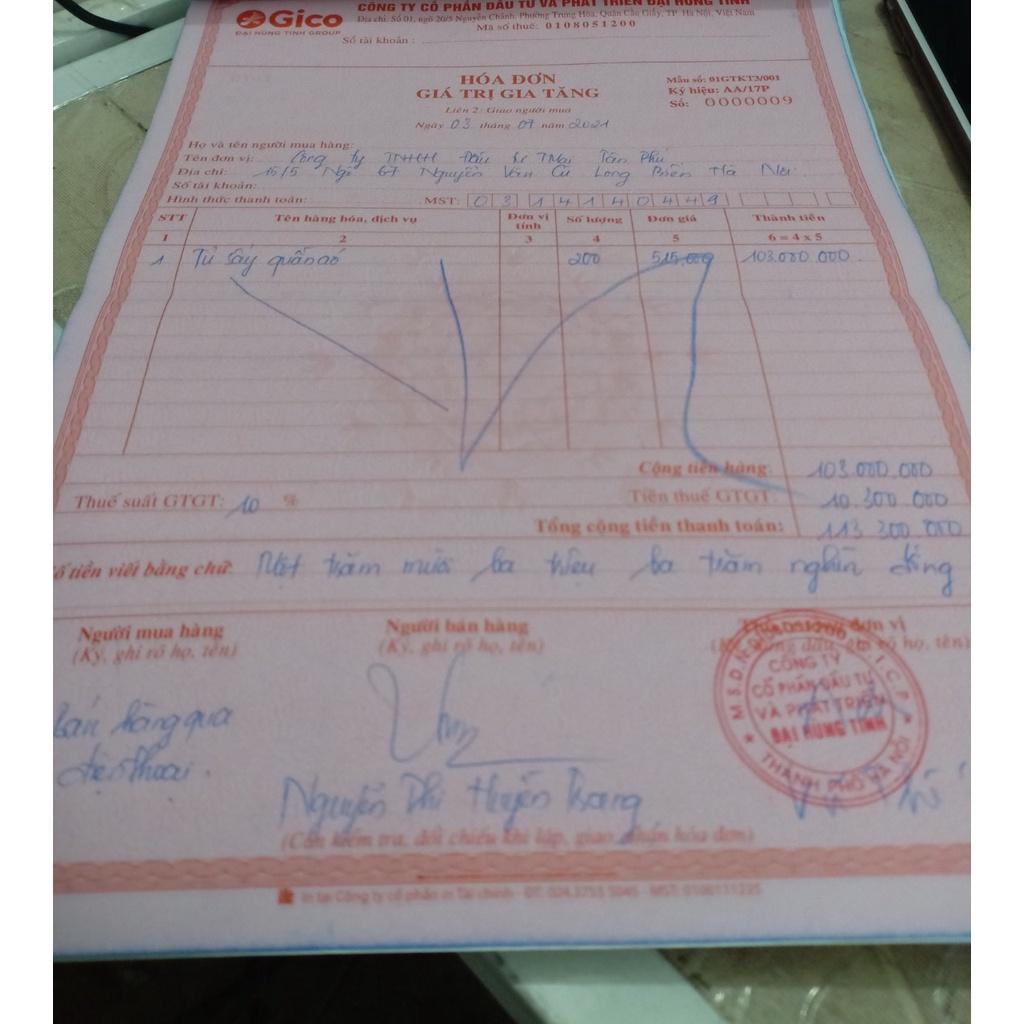 Gico
ĐẠI HÙNG TINH GROUP
CÔNG TY CỔ PHẦN ĐẦU TƯ VÀ PHÁT TRIỂN ĐẠI HÙNG TINH
Địa chỉ: Số 01, ngõ 20/5 Nguyễn Chánh, Phường Trung Hòa, Quận Cầu Giấy, TP Hà Nội, Việt Nam
Mã số thuế: 0108051200
Số tài khoản:
HÓA ĐƠN
GIÁ TRỊ GIA TĂNG
Liên 2: Giao người mua
Ngày 03 tháng 07 năm 2021
Mẫu số: 01GTKT3/001
Ký hiệu: AA/17P
Số: 0000009
Họ và tên người mua hàng:
Tên đơn vị: Công ty TNHH Đầu tư TMại Tân Phú
Địa chỉ: 15/5 Ngõ 67 Nguyễn Văn Cừ Long Biên Hà Nội
Số tài khoản:
Hình thức thanh toán: MST: 0314140449
STT Tên hàng hóa, dịch vụ Đơn vị tính Số lượng Đơn giá Thành tiền
1 2 3 4 5 6 = 4 x 5
1 Tủ sấy quần áo 200 515.000 103.000.000
Cộng tiền hàng: 103.000.000
Thuế suất GTGT: 10 % Tiền thuế GTGT: 10.300.000
Tổng cộng tiền thanh toán: 113.300.000
Số tiền viết bằng chữ: Một trăm mười ba triệu ba trăm nghìn đồng
Người mua hàng Người bán hàng Thủ trưởng đơn vị
(Ký, ghi rõ họ, tên) (Ký, ghi rõ họ, tên) (Ký, đóng dấu, ghi rõ họ, tên)
Bán hàng qua
điện thoại.
Nguyễn Thị Huyền Trang
CÔNG TY
CỔ PHẦN ĐẦU TƯ
VÀ PHÁT TRIỂN
ĐẠI HÙNG TINH
THÀNH PHỐ HÀ NỘI
(Cần kiểm tra, đối chiếu khi lập, giao nhận hóa đơn)
In tại Công ty cổ phần in Tài chính - ĐT: 024.3755 5045 - MST: 0100111225